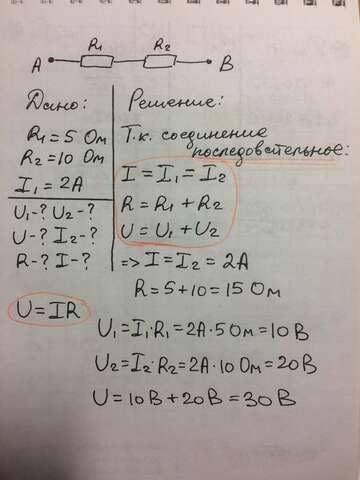 R₁ R₂
A B
Дано:
R₁ = 5 Ом
R₂ = 10 Ом
I₁ = 2А
U₁-? U₂-?
U-? I₂-?
R-? I-?
U = IR
Решение:
Т.к. соединение
последовательное:
I = I₁ = I₂
R = R₁ + R₂
U = U₁ + U₂
=> I = I₂ = 2А
R = 5 + 10 = 15 Ом
U₁ = I₁·R₁ = 2А·5 Ом = 10 В
U₂ = I₂·R₂ = 2А·10 Ом = 20 В
U = 10 В + 20 В = 30 В